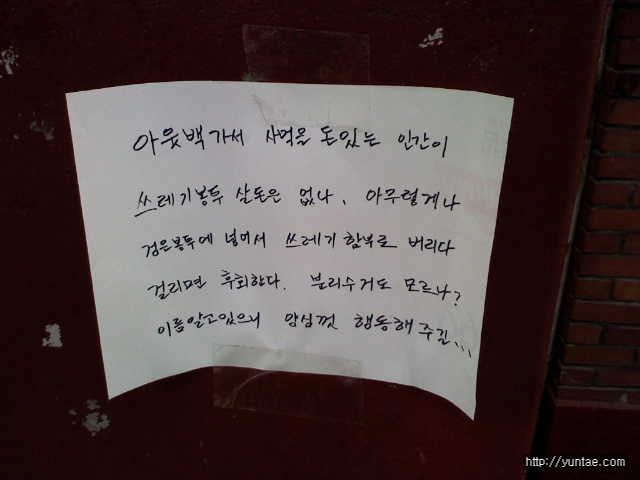 아웃백가서 사먹을 돈있는 인간이
쓰레기봉투 살돈은 없나, 아무렇게나
검은봉투에 넣어서 쓰레기 함부로 버리다
걸리면 후회한다. 분리수거도 모르나?
이름알고있으니 양심껏 행동해주길...
http://yuntae.com